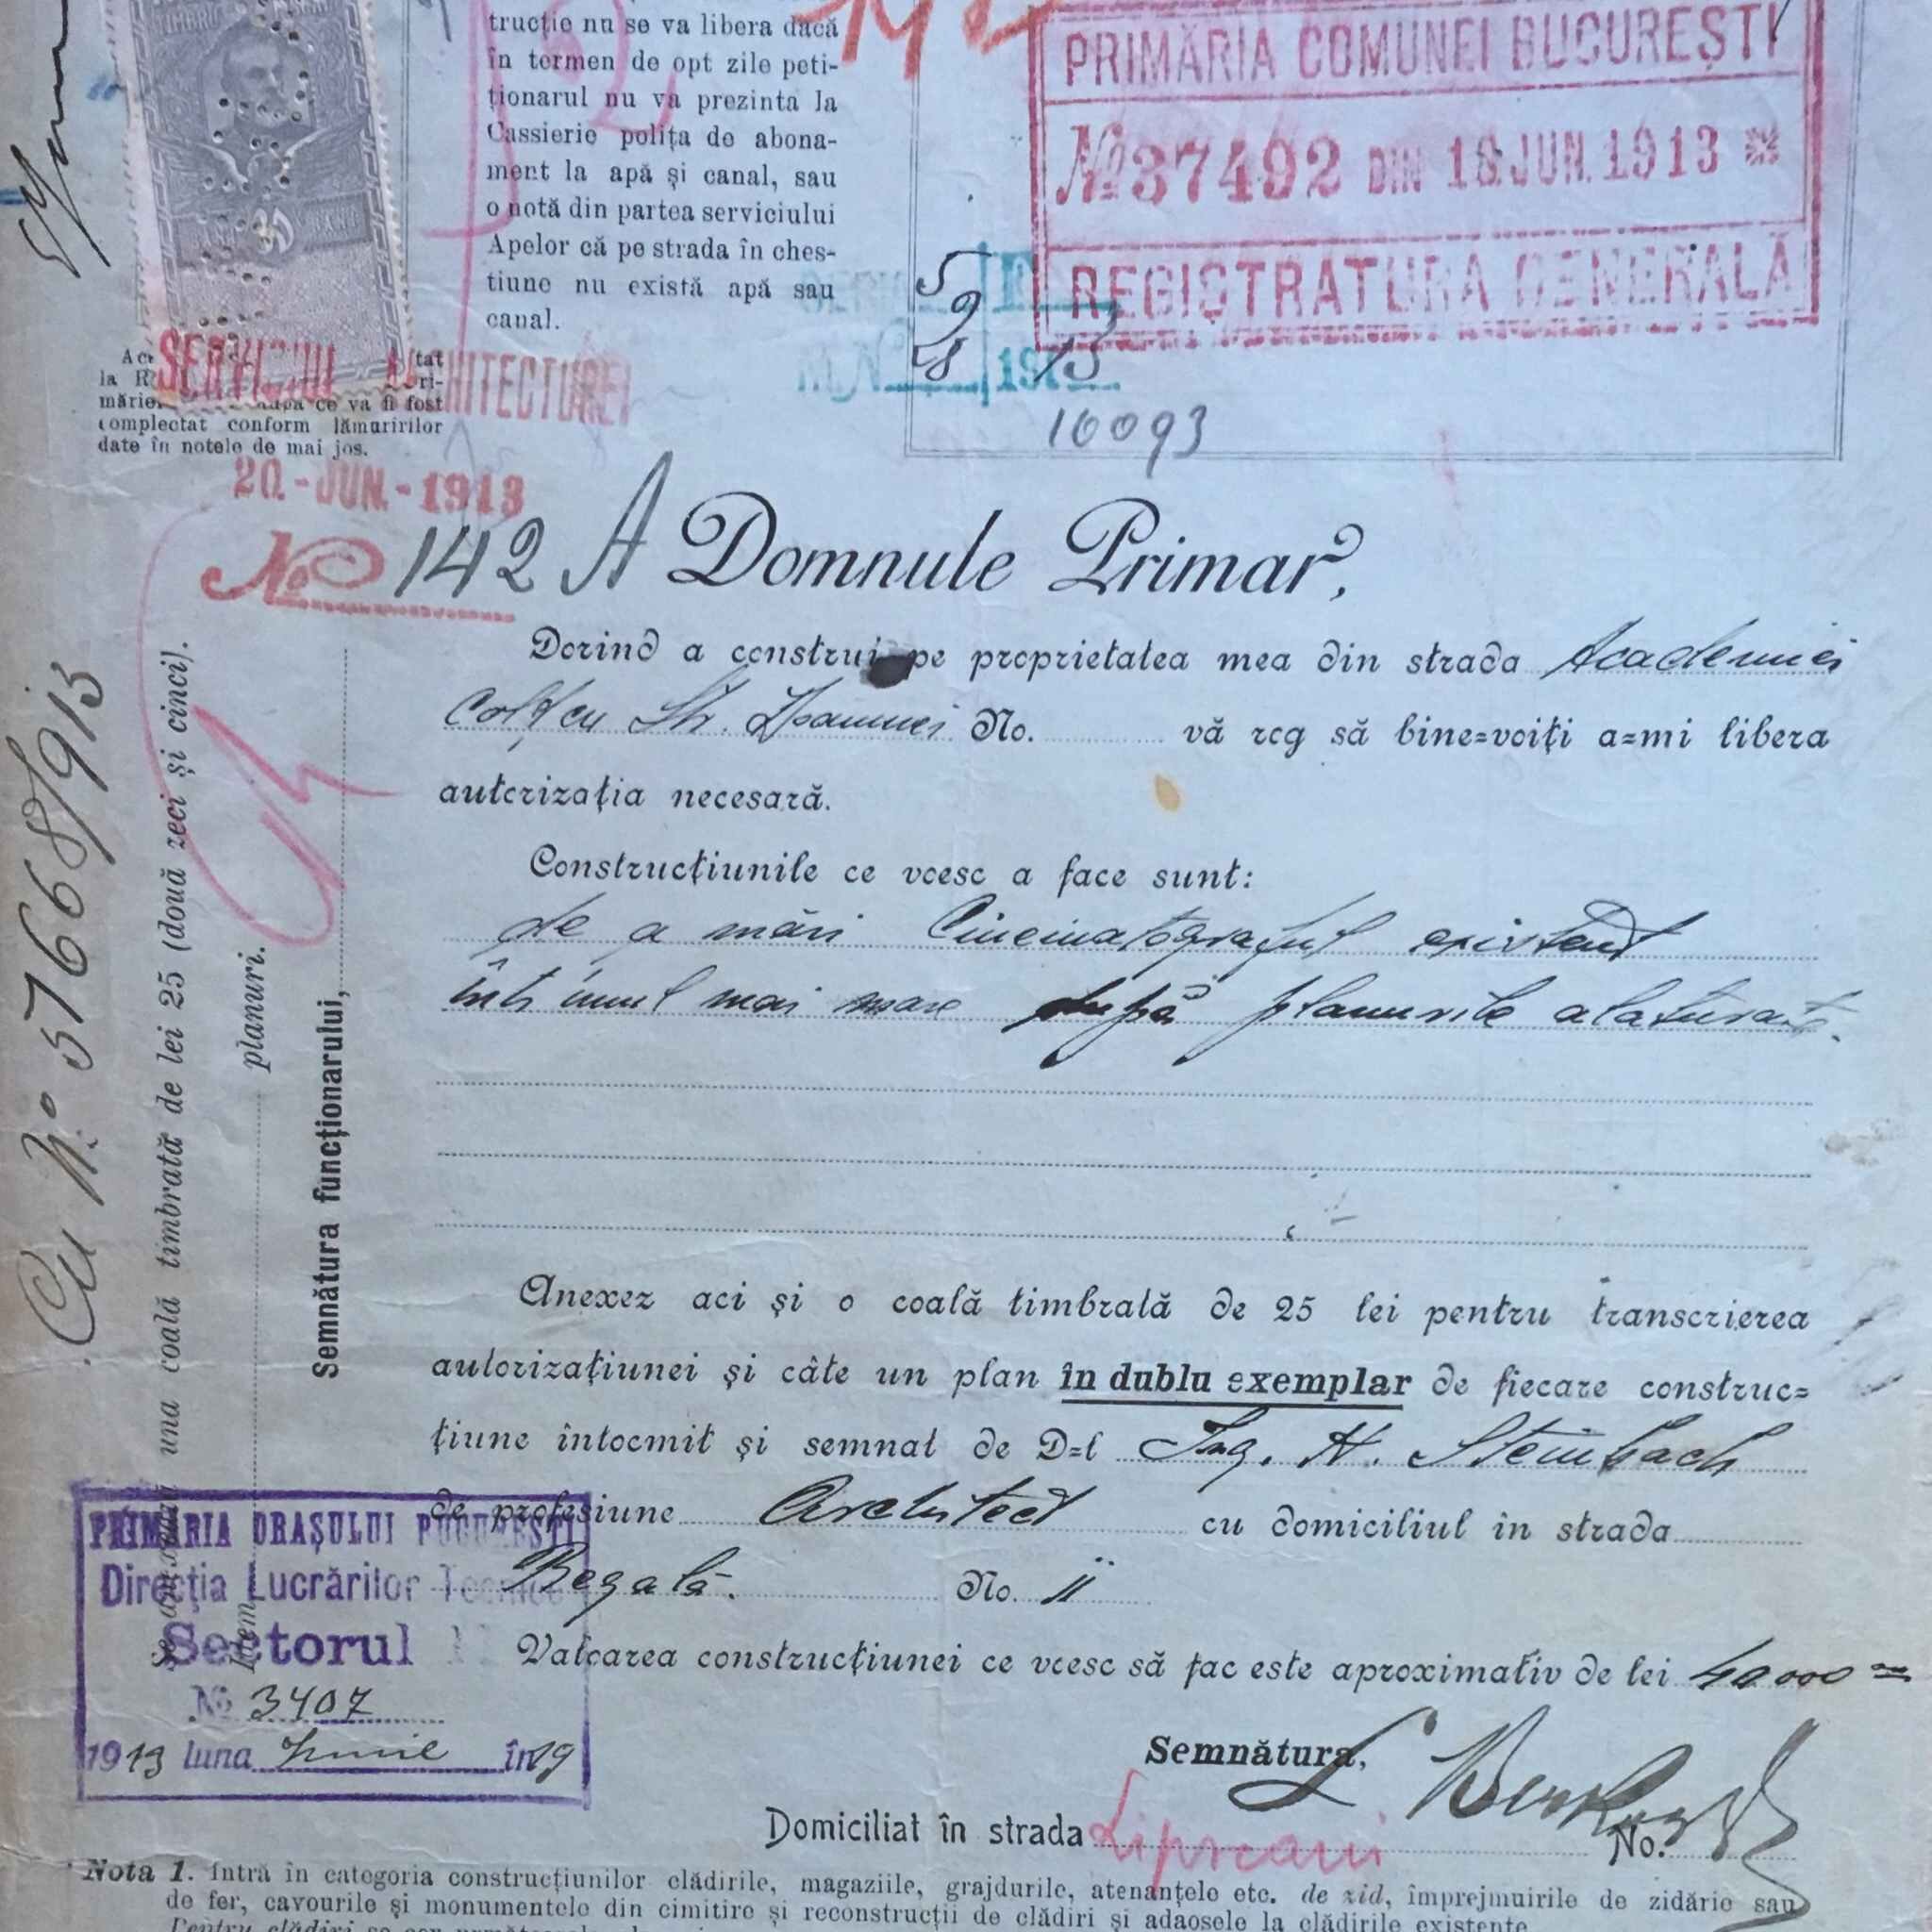 trucție nu se va libera dacă
în termen de opt zile peti-
ționarul nu va prezinta la
Cassierie polița de abona-
ment la apă și canal, sau
o notă din partea serviciului
Apelor că pe strada în ches-
tiune nu există apă sau
canal.
PRIMĂRIA COMUNEI BUCUREȘTI
No 37492 DIN 18.JUN.1913
REGISTRATURA GENERALĂ
10093
SERVICIUL ARCHITECTUREI
ce va fi fost
complectat conform lămuririlor
date în notele de mai jos.
20.-JUN.-1913
No 142 A
Domnule Primar,
Dorind a construi pe proprietatea mea din strada Academiei
colț cu Str. Doamnei No. vă rog să bine=voiți a=mi libera
autorizația necesară.
Construcțiunile ce voesc a face sunt:
de a mări Cinematograful existent
într'unul mai mare după planurile alaturate.
Anexez aci și o coală timbrată de 25 lei pentru transcrierea
autorizațiunei și câte un plan în dublu exemplar de fiecare construc=
țiune întocmit și semnat de D=l Ing. H. Steinbach
de profesiune Architect cu domiciliul in strada
Regală. No. 11
Valoarea construcțiunei ce voesc să fac este aproximativ de lei 40000=
Semnătura,
Domiciliat în strada Lipscani No.
Nota 1. Intră în categoria construcțiunilor clădirile, magaziile, grajdurile, atenanțele etc. de zid, împrejmuirile de zidărie sau
de fer, cavourile și monumentele din cimitire și reconstrucții de clădiri și adaosele la clădirile existente.
PRIMĂRIA ORAȘULUI BUCUREȘTI
Direcția Lucrărilor Tecnice
Sectorul
No 3407
1913 luna Iunie în 19
Cu No 37668/913
una coală timbrată de lei 25 (două zeci și cinci).
Idem planuri.
Semnătura funcționarului,